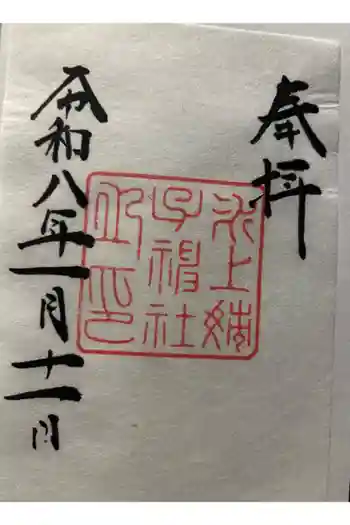 奉拝
氷上姉
子神社
之印
令和八年一月十一日